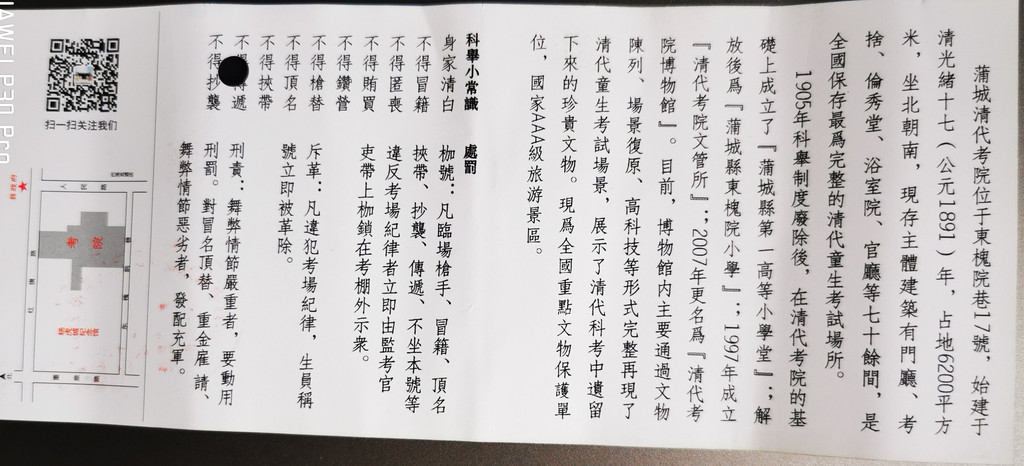 蒲城清代考院位于東槐院巷17號，始建于
清光緒十七（公元1891）年，占地6200平方
米，坐北朝南，現存主體建築有門廳、考
捨、倫秀堂、浴室院、官廳等七十餘間，是
全國保存最爲完整的清代童生考試場所。
1905年科舉制度廢除後，在清代考院的基
礎上成立了『蒲城縣第一高等小學堂』；解
放後爲『蒲城縣東槐院小學』；1997年成立
『清代考院文管所』；2007年更名爲『清代考
院博物館』。目前，博物館內主要通過文物
陳列、場景復原、高科技等形式完整再現了
清代童生考試場景，展示了清代科考中遺留
下來的珍貴文物。現爲全國重點文物保護單
位，國家AAA級旅游景區。
科舉小常識
身家清白
不得冒籍
不得匿喪
不得賄買
不得鑽營
不得槍替
不得頂名
不得挾帶
不得遞
不得抄襲
處罰
枷號：凡臨場槍手、冒籍、頂名
挾帶、抄襲、傳遞、不坐本號等
違反考場紀律者立即由監考官
吏帶上枷鎖在考棚外示衆。
斥革：凡違犯考場紀律，生員稱
號立即被革除。
刑責：舞弊情節嚴重者，要動用
刑罰。對冒名頂替、重金雇請、
舞弊情節惡劣者，發配充軍。
扫一扫关注我们
县政府
人民路
考院
杨虎城纪念馆
AWEI P30 Pro